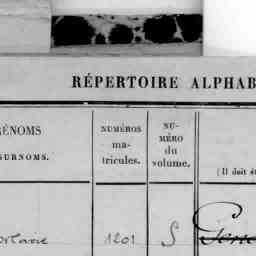 RÉPERTOIRE ALPHAB
RÉNOMS
SURNOMS.
NUMÉROS
ma-
tricules.
NU-
MÉRO
du
volume.
(Il doit ê
1201
S